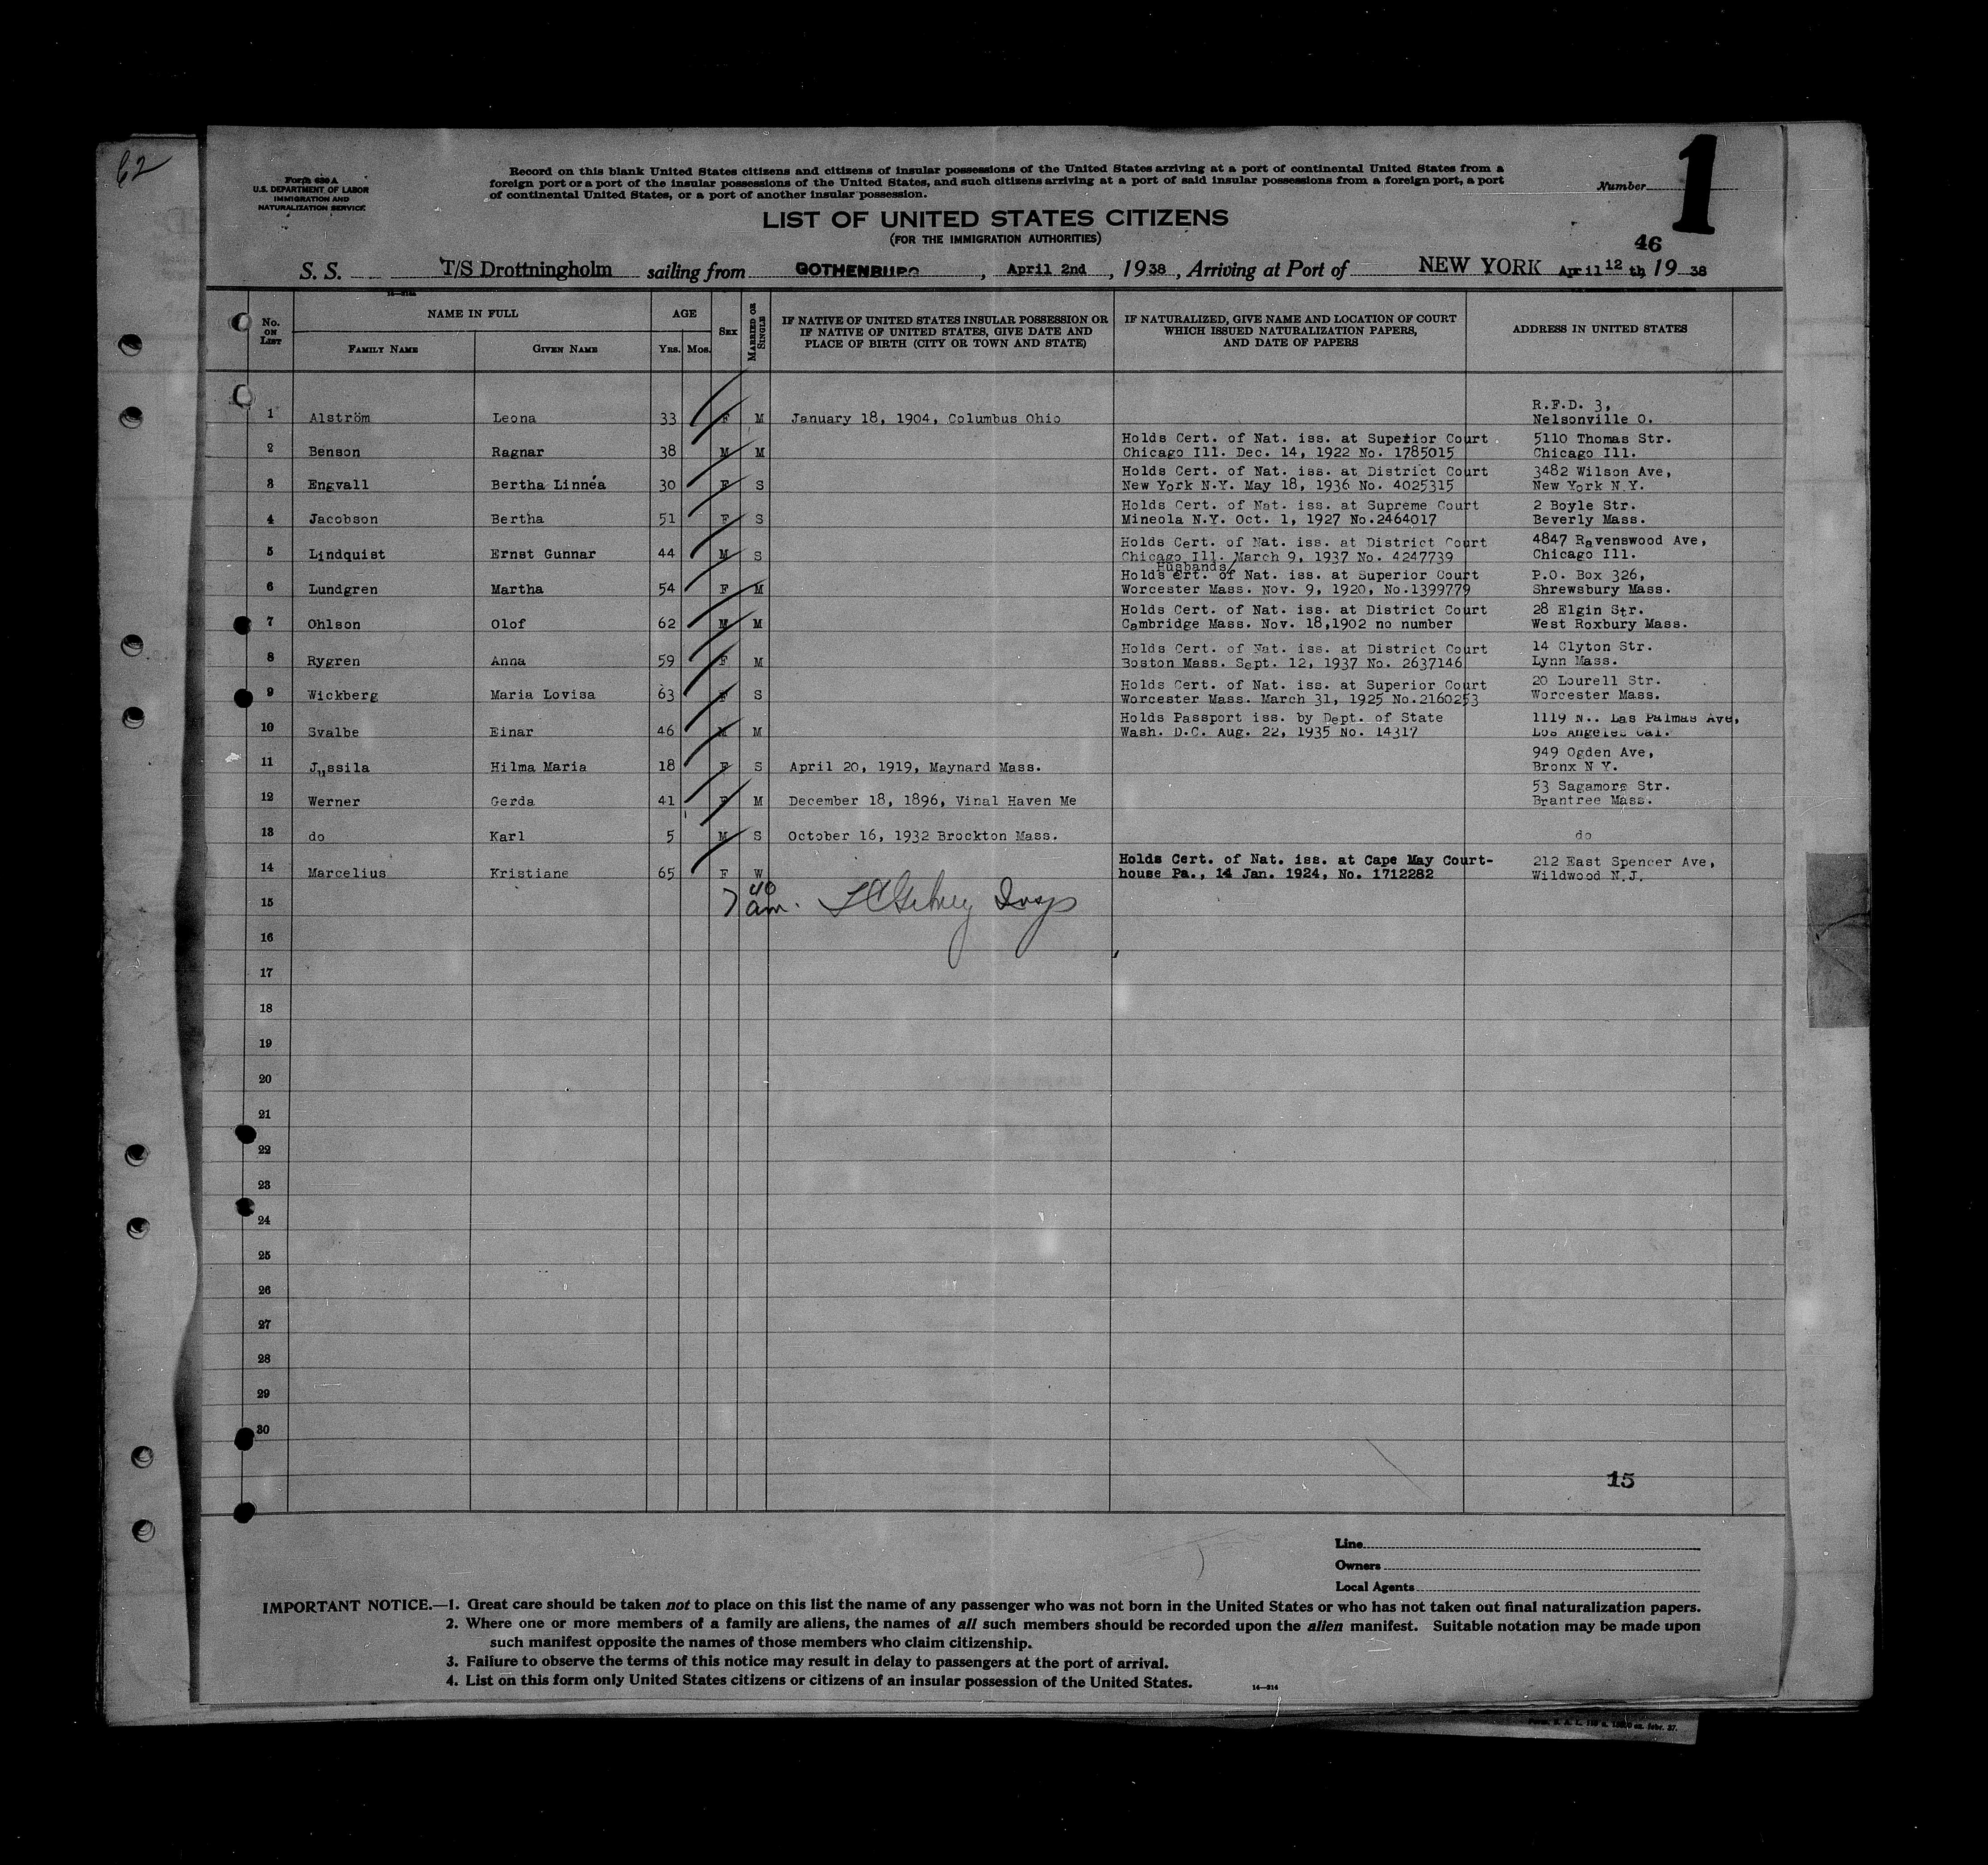 62
1
Form 630 A
U.S. DEPARTMENT OF LABOR
IMMIGRATION AND
NATURALIZATION SERVICE
Record on this blank United States citizens and citizens of insular possessions of the United States arriving at a port of continental United States from a
foreign port or a port of the insular possessions of the United States, and such citizens arriving at a port of said insular possessions from a foreign port, a port
of continental United States, or a port of another insular possession.
Number
LIST OF UNITED STATES CITIZENS
(FOR THE IMMIGRATION AUTHORITIES)
46
S. S. T/S Drottningholm sailing from GOTHENBURG, April 2nd, 1938, Arriving at Port of NEW YORK April 12 th, 1938
No. ON LIST
NAME IN FULL
FAMILY NAME GIVEN NAME
AGE
Yrs. Mos.
SEX
MARRIED OR SINGLE
IF NATIVE OF UNITED STATES INSULAR POSSESSION OR
IF NATIVE OF UNITED STATES, GIVE DATE AND
PLACE OF BIRTH (CITY OR TOWN AND STATE)
IF NATURALIZED, GIVE NAME AND LOCATION OF COURT
WHICH ISSUED NATURALIZATION PAPERS,
AND DATE OF PAPERS
ADDRESS IN UNITED STATES
R.F.D. 3,
1 Alström Leona 33 F M January 18, 1904, Columbus Ohio Nelsonville O.
Holds Cert. of Nat. iss. at Superior Court 5110 Thomas Str.
2 Benson Ragnar 38 M M Chicago Ill. Dec. 14, 1922 No. 1785015 Chicago Ill.
Holds Cert. of Nat. iss. at District Court 3482 Wilson Ave,
3 Engvall Bertha Linnéa 30 F S New York N.Y. May 18, 1936 No. 4025315 New York N.Y.
Holds Cert. of Nat. iss. at Supreme Court 2 Boyle Str.
4 Jacobson Bertha 51 F S Mineola N.Y. Oct. 1, 1927 No.2464017 Beverly Mass.
Holds Cert. of Nat. iss. at District Court 4847 Ravenswood Ave,
5 Lindquist Ernst Gunnar 44 M S Chicago Ill. March 9, 1937 No. 4247739 Chicago Ill.
Husbands/
Holds ert. of Nat. iss. at Superior Court P.O. Box 326,
6 Lundgren Martha 54 F M Worcester Mass. Nov. 9, 1920, No.1399779 Shrewsbury Mass.
Holds Cert. of Nat. iss. at District Court 28 Elgin Str.
7 Ohlson Olof 62 M M Cambridge Mass. Nov. 18,1902 no number West Roxbury Mass.
Holds Cert. of Nat. iss. at District Court 14 Clyton Str.
8 Rygren Anna 59 F M Boston Mass. Sept. 12, 1937 No. 2637146 Lynn Mass.
Holds Cert. of Nat. iss. at Superior Court 20 Lourell Str.
9 Wickberg Maria Lovisa 63 F S Worcester Mass. March 31, 1925 No.2160253 Worcester Mass.
Holds Passport iss. by Dept. of State 1119 N.. Las Palmas Ave,
10 Svalbe Einar 46 M M Wash. D.C. Aug. 22, 1935 No. 14317 Los Angeles Cal.
949 Ogden Ave,
11 Jussila Hilma Maria 18 F S April 20, 1919, Maynard Mass. Bronx N Y.
53 Sagamore Str.
12 Werner Gerda 41 F M December 18, 1896, Vinal Haven Me Brantree Mass.
13 do Karl 5 M S October 16, 1932 Brockton Mass. do
Holds Cert. of Nat. iss. at Cape May Court- 212 East Spencer Ave,
14 Marcelius Kristiane 65 F W house Pa., 14 Jan. 1924, No. 1712282 Wildwood N.J.
15 7 40 am. Insp
16
17
18
19
20
21
22
23
24
25
26
27
28
29
30
15
Line
Owners
Local Agents
IMPORTANT NOTICE.—1. Great care should be taken not to place on this list the name of any passenger who was not born in the United States or who has not taken out final naturalization papers.
2. Where one or more members of a family are aliens, the names of all such members should be recorded upon the alien manifest. Suitable notation may be made upon
such manifest opposite the names of those members who claim citizenship.
3. Failure to observe the terms of this notice may result in delay to passengers at the port of arrival.
4. List on this form only United States citizens or citizens of an insular possession of the United States.
14—314